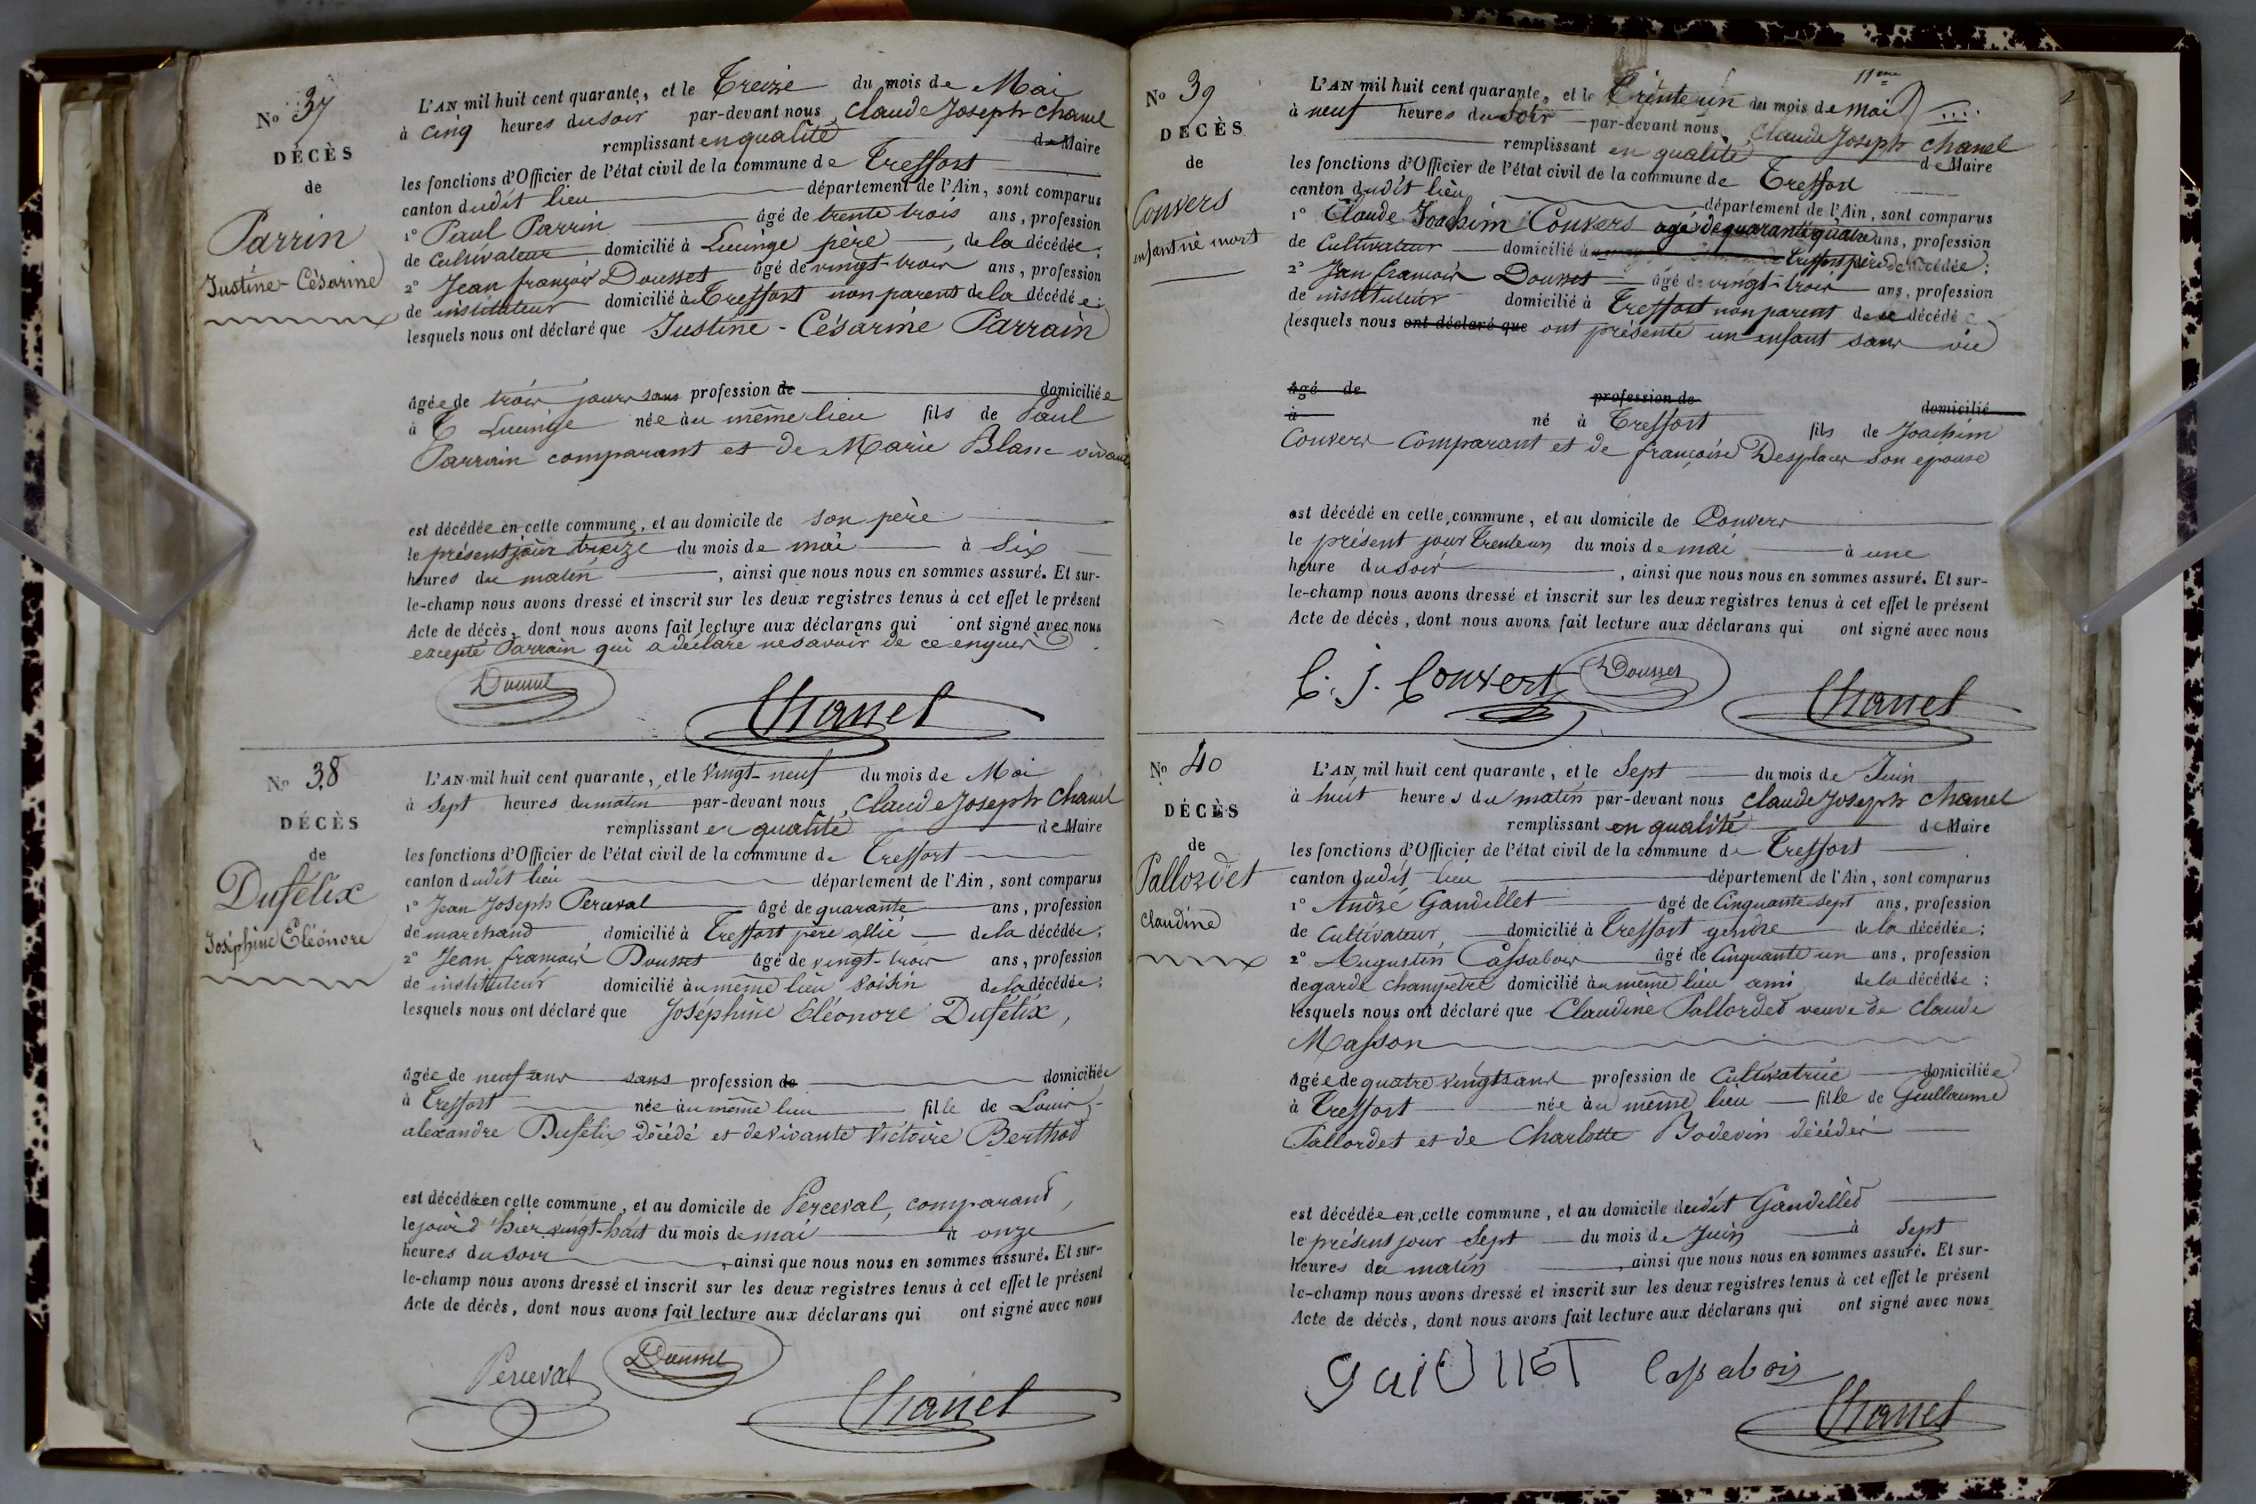 No 37
DÉCÈS
de
Parrin
Justine-Césarine
L'AN mil huit cent quarante, et le Treize du mois de Mai
à cinq heures du soir par-devant nous Claude Joseph Chanel
remplissant en qualité de Maire
les fonctions d'Officier de l'état civil de la commune de Treffort
canton dudit lieu département de l'Ain, sont comparus
1° Paul Parrin âgé de trente trois ans, profession
de Cultivateur domicilié à Lucinge père, de la décédée;
2° Jean françois Dousset âgé de vingt-trois ans, profession
de instituteur domicilié à Treffort non parent de la décédée;
lesquels nous ont déclaré que Justine-Césarine Parrain
âgée de trois jours sans profession de domiciliée
à T Lucinge née au même lieu fils de Paul
Parrain comparant et de Marie Blanc vivante
est décédée en cette commune, et au domicile de son père
le présent jour treize du mois de mai à Six
heures du matin, ainsi que nous nous en sommes assuré. Et sur-
le-champ nous avons dressé et inscrit sur les deux registres tenus à cet effet le présent
Acte de décès, dont nous avons fait lecture aux déclarans qui ont signé avec nous
excepté Parrain qui a déclaré ne savoir de ce enquis
Dousset
Chanel
No 38
DÉCÈS
de
Dufélix
Joséphine Eléonore
L'AN mil huit cent quarante, et le vingt-neuf du mois de Mai
à Sept heures du matin par-devant nous Claude Joseph Chanel
remplissant en qualité de Maire
les fonctions d'Officier de l'état civil de la commune de Treffort
canton dudit lieu département de l'Ain, sont comparus
1° Jean Joseph Perceval âgé de quarante ans, profession
de marchand domicilié à Treffort père allié de la décédée;
2° Jean françois Dousset âgé de vingt-trois ans, profession
de instituteur domicilié au même lieu voisin de la décédée;
lesquels nous ont déclaré que Joséphine Eléonore Dufélix,
âgée de neuf ans sans profession de domiciliée
à Treffort née au même lieu fille de Louis
alexandre Dufélix décédé et de vivante Victoire Berthod
est décédée en cette commune, et au domicile de Perceval, comparant,
le jour d'hier vingt-huit du mois de mai à onze
heures du soir, ainsi que nous nous en sommes assuré. Et sur-
le-champ nous avons dressé et inscrit sur les deux registres tenus à cet effet le présent
Acte de décès, dont nous avons fait lecture aux déclarans qui ont signé avec nous
Perceval Dousset
Chanel
No 39
DÉCÈS
de
Convers
enfant né mort
11me
L'AN mil huit cent quarante, et le Trente un du mois de mai
à neuf heures du soir par-devant nous, Claude Joseph Chanel
remplissant en qualité de Maire
les fonctions d'Officier de l'état civil de la commune de Treffort
canton dudit lieu département de l'Ain, sont comparus
1° Claude Joachim Convers agé de quarante quatre ans, profession
de Cultivateur domicilié à Treffort père de décédée;
2° Jean françois Dousset âgé de vingt-trois ans, profession
de instituteur domicilié à Treffort non parent de ce décédé
lesquels nous ont déclaré que ont présenté un enfant sans vie
âgé de profession de domicilié
à né à Treffort fils de Joachim
Convers Comparant et de françoise Desplaces son epouse
est décédé en cette commune, et au domicile de Convers
le présent jour Trente un du mois de mai à une
heure du soir, ainsi que nous nous en sommes assuré. Et sur-
le-champ nous avons dressé et inscrit sur les deux registres tenus à cet effet le présent
Acte de décès, dont nous avons fait lecture aux déclarans qui ont signé avec nous
C. J. Convert Dousset
Chanel
No 40
DÉCÈS
de
Pallordet
Claudine
L'AN mil huit cent quarante, et le Sept du mois de Juin
à huit heures du matin par-devant nous Claude Joseph Chanel
remplissant en qualité de Maire
les fonctions d'Officier de l'état civil de la commune de Treffort
canton dudit lieu département de l'Ain, sont comparus
1° André Gandillet âgé de Cinquante Sept ans, profession
de Cultivateur domicilié à Treffort gendre de la décédée;
2° Augustin Cassabois âgé de Cinquante un ans, profession
de garde champêtre domicilié au même lieu ami de la décédée;
lesquels nous ont déclaré que Claudine Pallordet veuve de Claude
Masson
âgée de quatre vingts ans profession de Cultivatrice domiciliée
à Treffort née au même lieu fille de Guillaume
Pallordet et de Charlotte Bodevin décédés
est décédée en cette commune, et au domicile dudit Gandillet
le présent jour Sept du mois de Juin à Sept
heures du matin, ainsi que nous nous en sommes assuré. Et sur-
le-champ nous avons dressé et inscrit sur les deux registres tenus à cet effet le présent
Acte de décès, dont nous avons fait lecture aux déclarans qui ont signé avec nous
Cassabois
Chanel